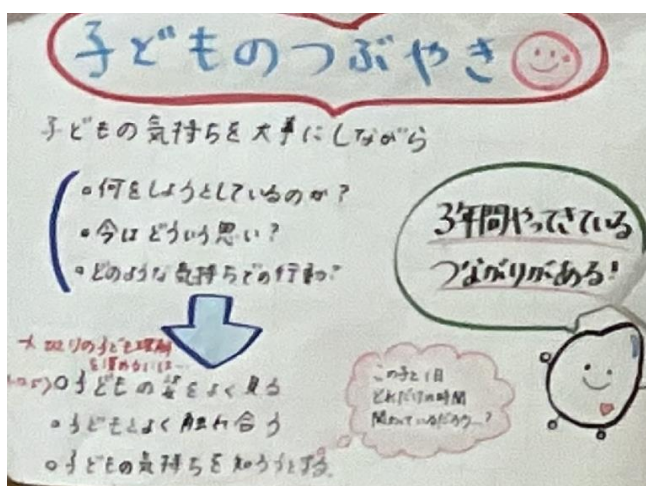 子どものつぶやき
子どもの気持ちを大事にしながら
・何をしようとしているのか?
・今はどういう思い?
・どのような気持ちでの行動?
3年間やってきている
つながりがある!
一人ひとりの子ども理解
を深めるには…
○子どもの姿をよく見る
・子どもとよく触れ合う
○子どもの気持ちを知ろうとする
この子と1日
どれだけの時間
関わっているだろう…?